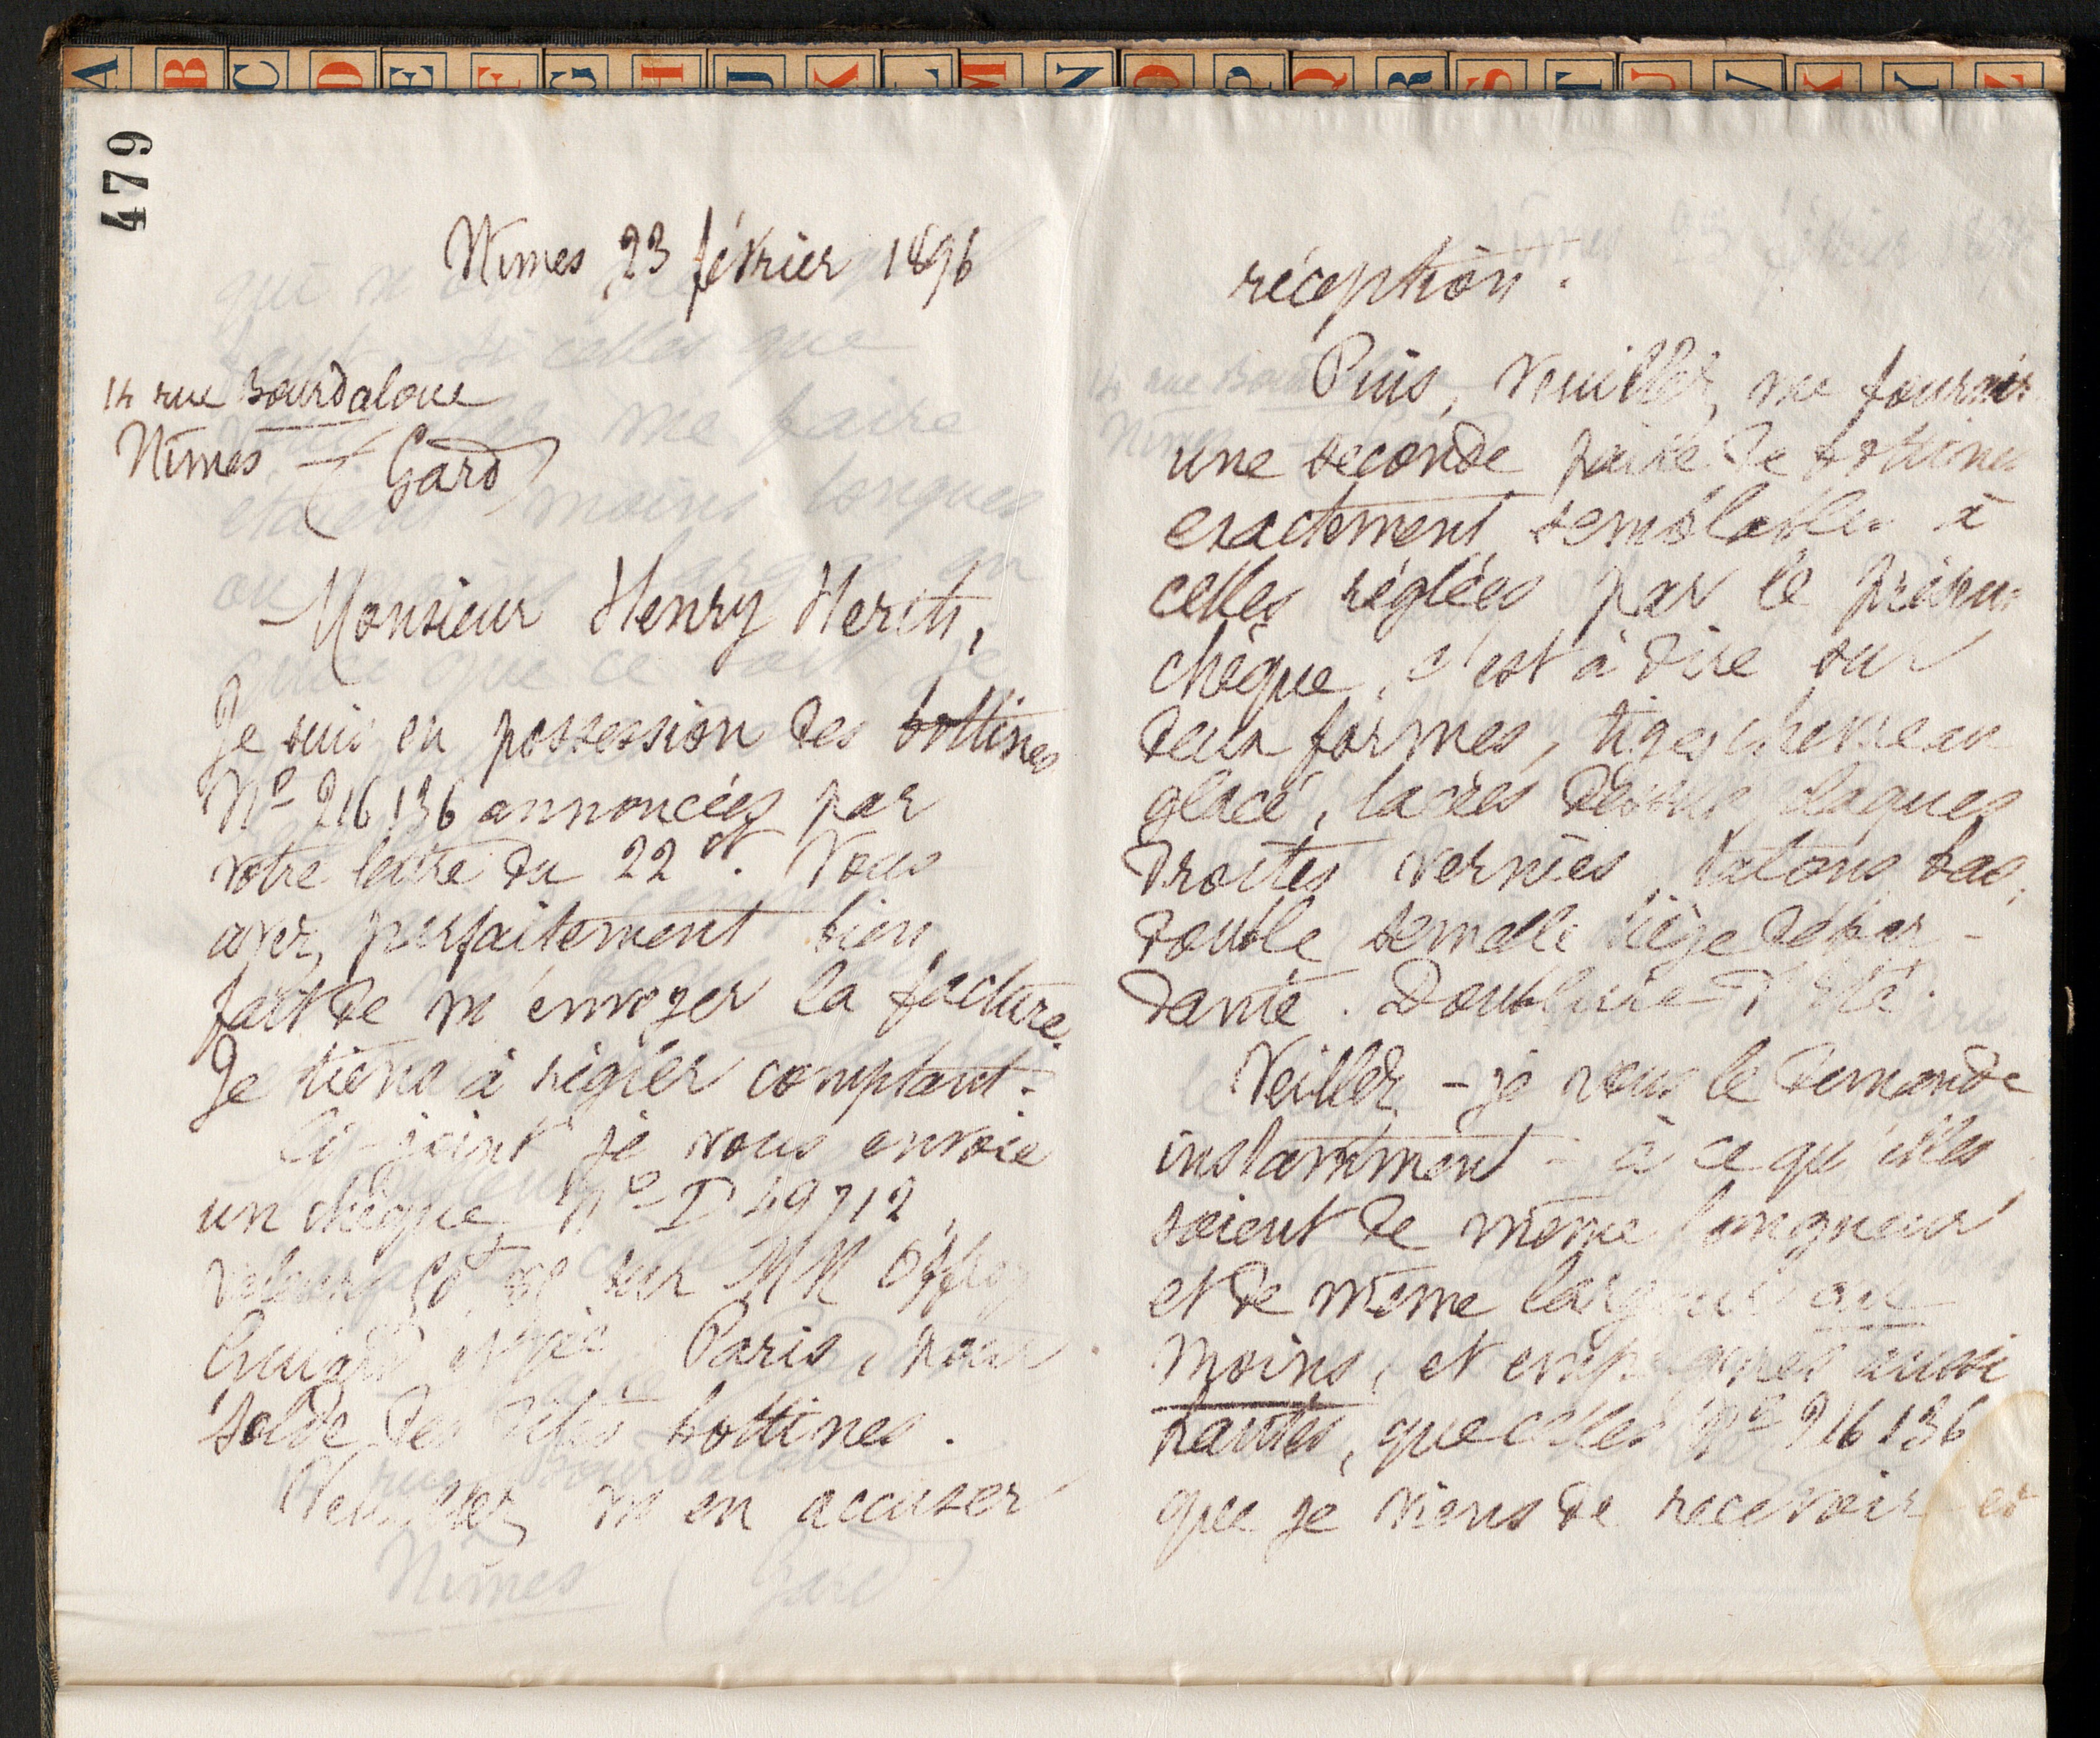 A B C D E F G H I J K L M N O P Q R S T U V X Y Z
479
Nimes 23 février 1896
14 rue Bourdaloue
Nîmes – (Gard)
Monsieur Henry Herth,
Je suis en possession des bottines
Nº 216136 annoncées par
votre lettre du 22 ct. Vous
avez parfaitement bien
fait de m'envoyer la facture.
Je tiens à régler comptant.
Ci-joint je vous envoie
un chèque Nº D 49712,
sur MM Offroy
Guiard et Cie Paris, pour
solde des dites bottines.
Veuillez m'en accuser
réception.
Puis, veuillez, me fournir
une seconde paire de bottines
exactement semblables à
celles réglées par le présent
chèque, c'est à dire sur
deux formes, tiges chevreau
glacé, lacées dessus, claques
droites vernies, talons bas,
double semelle liège débor-
dante. Doublure d'été.
Veillez – je vous le demande
instamment – à ce qu'elles
soient de même longueur
et de même largeur au
moins, et empeignes aussi
hautes, que celles Nº 216136
que je viens de recevoir et